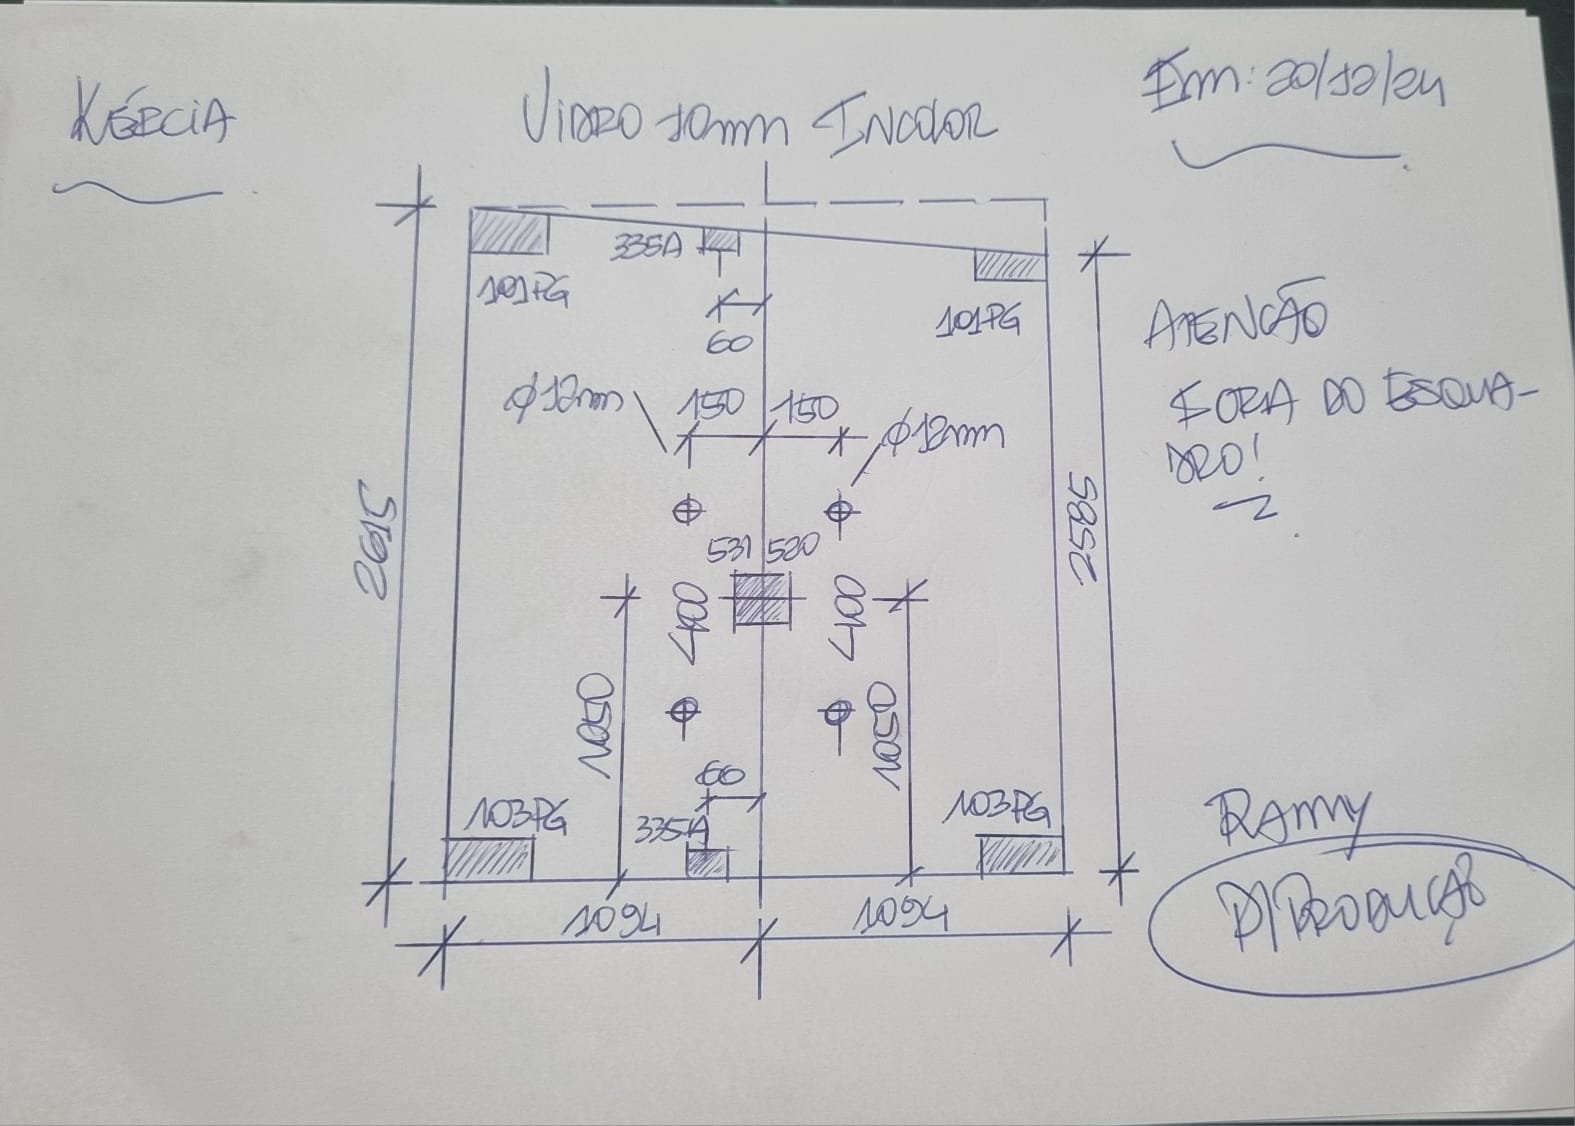 KÉRCIA
VIDRO 10mm INCOLOR
Em: 20/12/24
335A
101PG
101PG
60
ATENCÃO
FORA DO ESQUA-
DRO!
Φ12mm
150
150
Φ12mm
2615
2585
531
520
400
400
1050
1050
60
103PG
335A
103PG
1094
1094
RAMMY
P/PRODUÇÃO